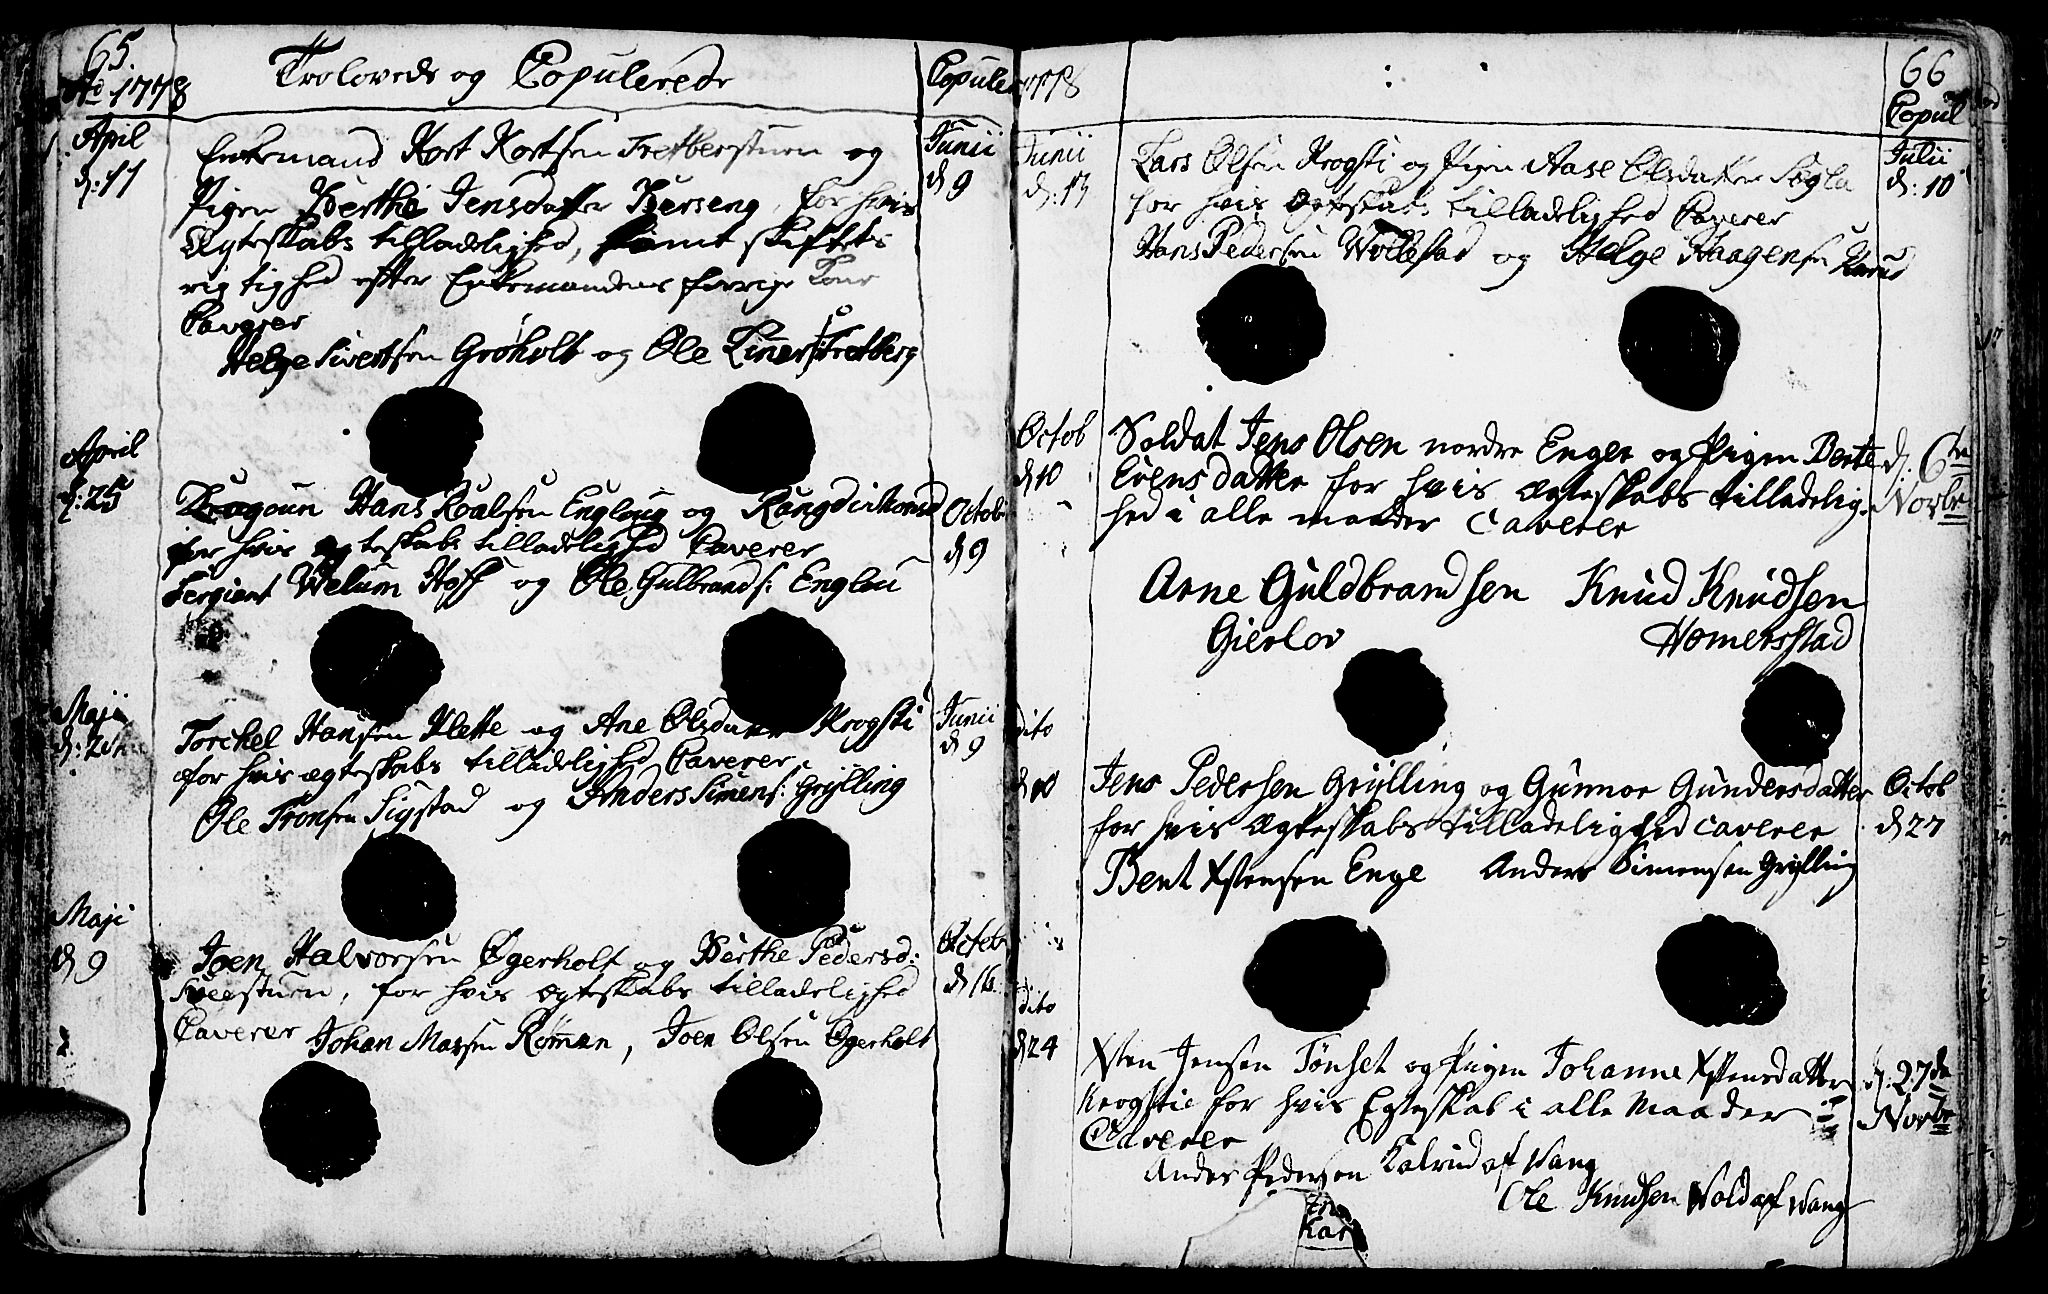 65.
Ao 1778
Troloveds og Copulerede
Copuler
April
d: 11
Enkemand Kort Kortsen Tretbersturn og
Pigen Berthe Jensdatter Berseng, for hvis
Ægteskabs tilladelighed, samt skiftets
rigtighed efter Enkemandens forrige Kone
Caverer
Helge Sivertsen Groholt og Ole Einers: Tretberg
Junii
d 9
April
d: 25
Dragoun Hans Roalsen Engloug og
for hvis ægteskabs tilladelighed Caverer
Sergiant Welum Hoff og Ole Gulbrands: Englou
Octob
d 9
Maji
Torchel Hansen Klette og Ane Olsdatter Krogsti
for hvis ægteskabs tilladelighed Caverer
Ole Tronsen Sigstad og Anders Simens: Grylling
Junii
d 9
Maji
d 9
Joen Halvorsen Øgerholt og Berthe Pedersd:
Sveesturn, for hvis ægteskabs tilladelighed
Caverer Johan Marsen Røman, Joen Olsen Øgerholt
Octob
d 16
1778
66
Copul
Junii
d: 13
Lars Olsen Krogsti og Pigen Aase Olsdatter Segla
for hvis Ægteskabs tilladelighed Caverer
Hans Pedersen Wollestad og Helge Haagensen
Julii
d: 10
Octob
d 10
Soldat Jens Olsen nordre Enger og Pigen Berte
Evensdatter for hvis Ægteskabs tilladelig-
hed i alle maader caverer
Arne Guldbrandsen Knud Knudsen
Gierlov Homersstad
d. 6te
Novbr
dito
d 10
Jens Pedersen Grylling og Gunnor Gundersdatter
for hvis Ægteskabs tilladelighed caverer
Bent Xstensen Enge Anders Simensen Grylling
Octob
d 27
dito
d 24
Xsten Jensen Tønset og Pigen Johanne Xstensdatter
Krogstie for hvis Egteskab i alle Maader
Caverer
Anders Pedersen Kalrud af Wang
Ole Knudsen Wold af Wang
d: 27de
Novbr